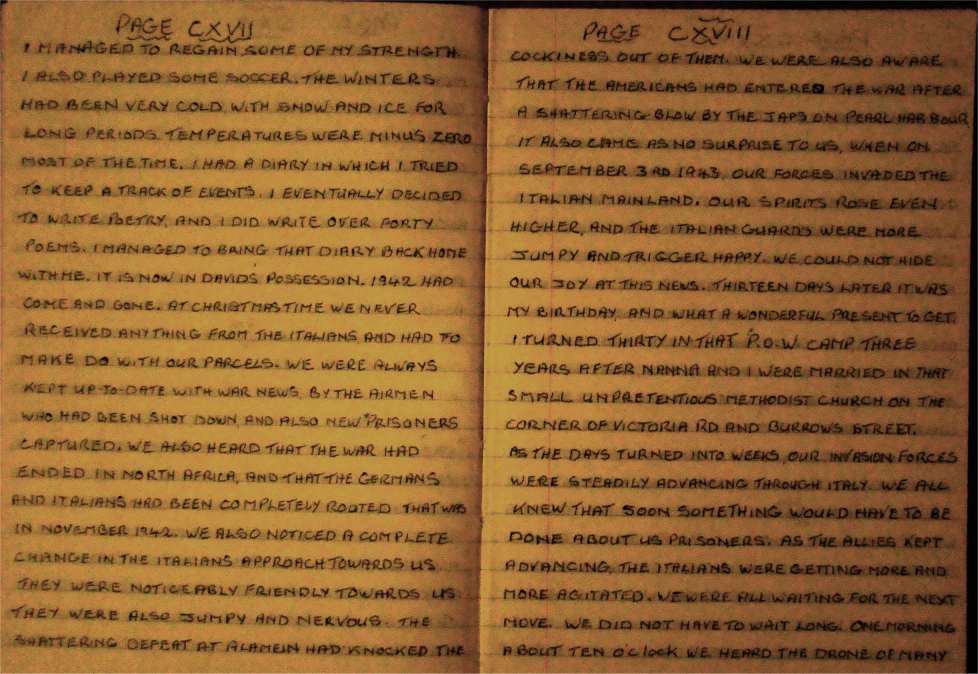 PAGE CXVII
I MANAGED TO REGAIN SOME OF MY STRENGTH.
I ALSO PLAYED SOME SOCCER. THE WINTERS
HAD BEEN VERY COLD, WITH SNOW AND ICE FOR
LONG PERIODS. TEMPERATURES WERE MINUS ZERO
MOST OF THE TIME. I HAD A DIARY IN WHICH I TRIED
TO KEEP A TRACK OF EVENTS. I EVENTUALLY DECIDED
TO WRITE POETRY, AND I DID WRITE OVER FORTY
POEMS. I MANAGED TO BRING THAT DIARY BACK HOME
WITH ME. IT IS NOW IN DAVIDS POSSESSION. 1942 HAD
COME AND GONE. AT CHRISTMAS TIME WE NEVER
RECEIVED ANYTHING FROM THE ITALIANS, AND HAD TO
MAKE DO WITH OUR PARCELS. WE WERE ALWAYS
KEPT UP-TO-DATE WITH WAR NEWS, BY THE AIRMEN
WHO HAD BEEN SHOT DOWN, AND ALSO NEW PRISONERS
CAPTURED. WE ALSO HEARD THAT THE WAR HAD
ENDED IN NORTH AFRICA, AND THAT THE GERMANS
AND ITALIANS HAD BEEN COMPLETELY ROUTED. THAT WAS
IN NOVEMBER 1942. WE ALSO NOTICED A COMPLETE
CHANGE IN THE ITALIANS APPROACH TOWARDS US.
THEY WERE NOTICEABLY FRIENDLY TOWARDS US.
THEY WERE ALSO JUMPY AND NERVOUS. THE
SHATTERING DEFEAT AT ALAMEIN HAD KNOCKED THE
PAGE CXVIII
COCKINESS OUT OF THEM. WE WERE ALSO AWARE
THAT THE AMERICANS HAD ENTERED THE WAR AFTER
A SHATTERING BLOW BY THE JAPS ON PEARL HARBOUR
IT ALSO CAME AS NO SURPRISE TO US, WHEN ON
SEPTEMBER 3RD 1943, OUR FORCES INVADED THE
ITALIAN MAINLAND. OUR SPIRITS ROSE EVEN
HIGHER, AND THE ITALIAN GUARDS WERE MORE
JUMPY AND TRIGGER HAPPY. WE COULD NOT HIDE
OUR JOY AT THIS NEWS. THIRTEEN DAYS LATER IT WAS
MY BIRTHDAY, AND WHAT A WONDERFUL PRESENT TO GET.
I TURNED THIRTY IN THAT P.O.W. CAMP THREE
YEARS AFTER NANNA AND I WERE MARRIED IN THAT
SMALL UNPRETENTIOUS METHODIST CHURCH ON THE
CORNER OF VICTORIA RD AND BURROWS STREET.
AS THE DAYS TURNED INTO WEEKS, OUR INVASION FORCES
WERE STEADILY ADVANCING THROUGH ITALY. WE ALL
KNEW THAT SOON SOMETHING WOULD HAVE TO BE
DONE ABOUT US PRISONERS. AS THE ALLIES KEPT
ADVANCING, THE ITALIANS WERE GETTING MORE AND
MORE AGITATED. WE WERE ALL WAITING FOR THE NEXT
MOVE. WE DID NOT HAVE TO WAIT LONG. ONE MORNING
ABOUT TEN O'Clock WE HEARD THE DRONE OF MANY